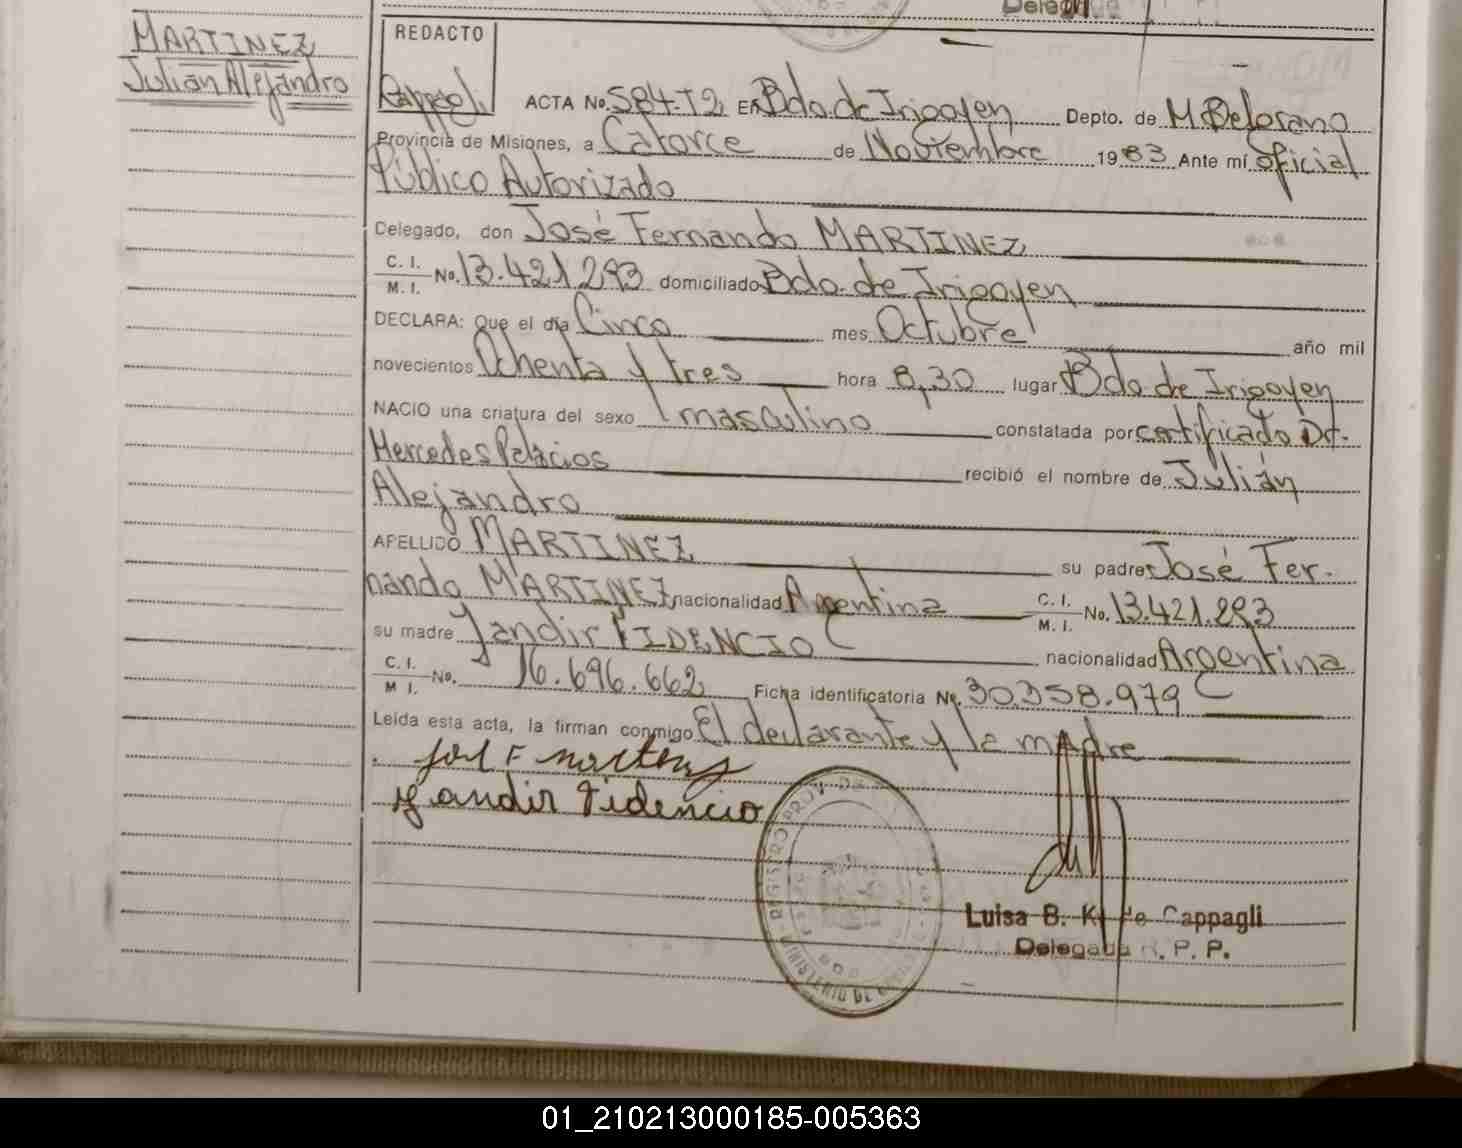 MARTINEZ
Julian Alejandro
REDACTO
Cappagli
ACTA No. 584-T2 En Bdo. de Irigoyen Depto. de M. Belgrano
Provincia de Misiones, a Catorce de Noviembre 1983 Ante mí Oficial
Público Autorizado
Delegado, don José Fernando MARTINEZ
C. I.
M. I. No. 13.421.293 domiciliado Bdo. de Irigoyen
DECLARA: Que el día Cinco mes Octubre año mil
novecientos Ochenta y tres hora 8,30 lugar Bdo de Irigoyen
NACIO una criatura del sexo masculino constatada por certificado Dr.
Mercedes Palacios recibió el nombre de Julián
Alejandro
APELLIDO MARTINEZ su padre José Fer-
nando MARTINEZ nacionalidad Argentina C. I.
M. I. No. 13.421.293
su madre Jandir FIDENCIO nacionalidad Argentina
C. I.
M I. No. 16.696.662 Ficha identificatoria No. 30.358.979
Leída esta acta, la firman conmigo El declarante y la madre
José F Martinez
Jandir Fidencio
REGISTRO PROV. DE
MINISTERIO DE
Luisa B. K. de Cappagli
Delegada R. P. P.
01_210213000185-005363